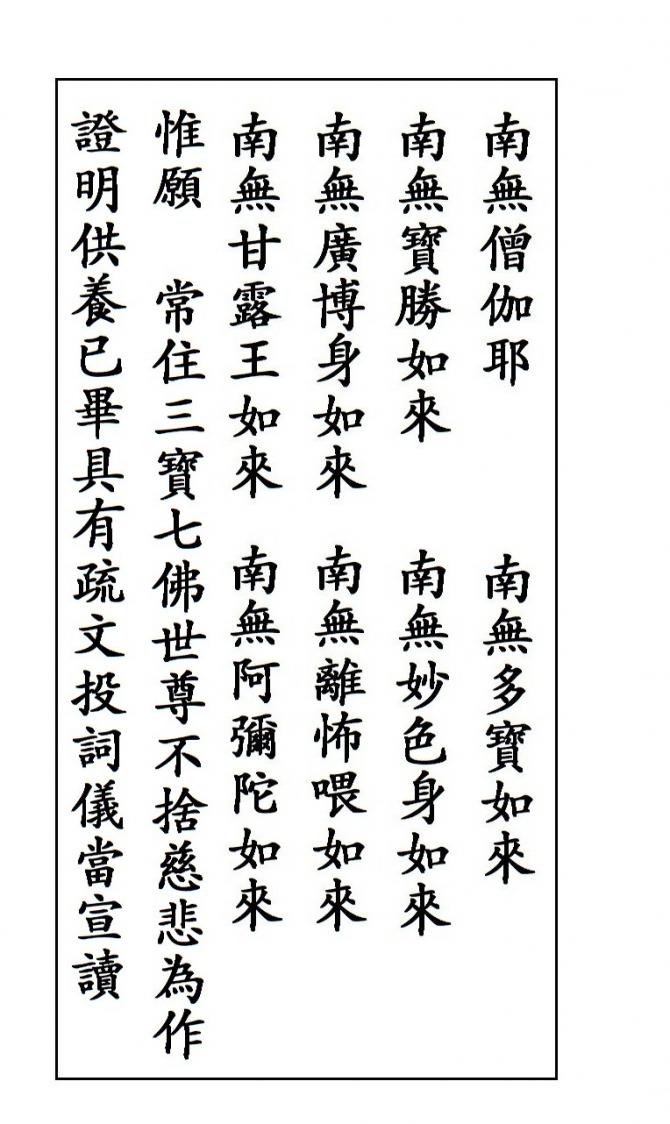 南無僧伽耶　南無多寶如來
南無寶勝如來　南無妙色身如來
南無廣博身如來　南無離怖喂如來
南無甘露王如來　南無阿彌陀如來
惟願　常住三寶七佛世尊不捨慈悲為作
證明供養已畢具有疏文投詞儀當宣讀